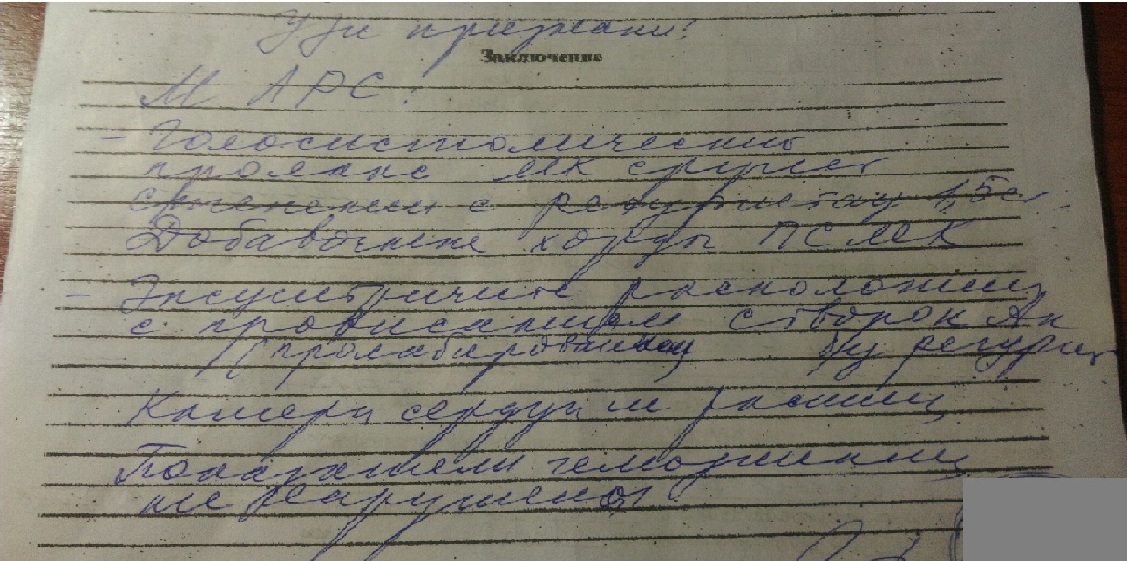 Узи признаки:
Заключение
М АРС:
- Голосистолический
пролапс МК средней
степени с регургитац 1,5 см.
Добавочные хорды ПСМК
- Эксцентричное расположение
с провисанием створок Ак
(пролабированием б/у регург
Камеры сердца не расшир
Показатели гемодинамики
не нарушены.